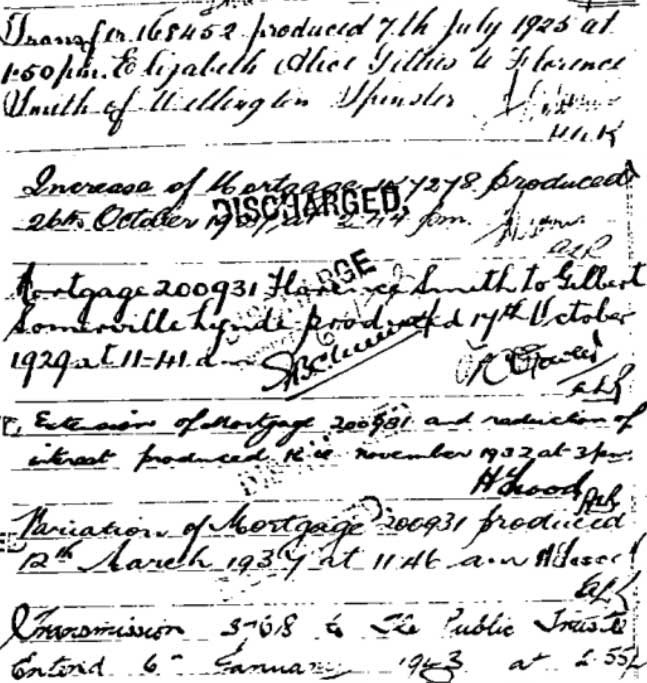 Transfer 168452 produced 7th July 1925 at
1.50 pm. Elizabeth Alice Gillies to Florence
Smith of Wellington Spinster
ALR
Increase of Mortgage 7278 produced
26th October at 2.44 pm.
DISCHARGED.
ALR
Mortgage 200931 Florence Smith to Gilbert
Somerville Lynde produced 17th October
1929 at 11-41 a.m
ALR
Extension of Mortgage 200931 and reduction of
interest produced November 1932 at 3 pm.
ALR
Variation of Mortgage 200931 produced
12th March 1937 at 11.46 a.m
ALR
Transmission to The Public Trustee
Entered 6th January 1943 at 2.55